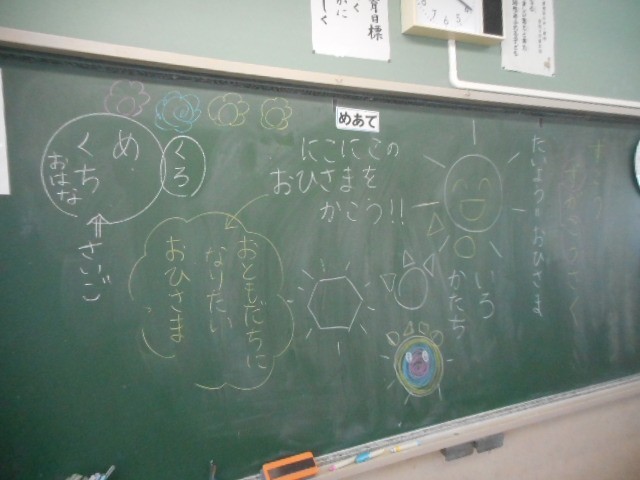 めあて
にこにこの
おひさまを
かこう!!
たいよう=おひさま
いろ
かたち
おともだちに
なりたい
おひさま
くろ
め
くち
おはな
さいご